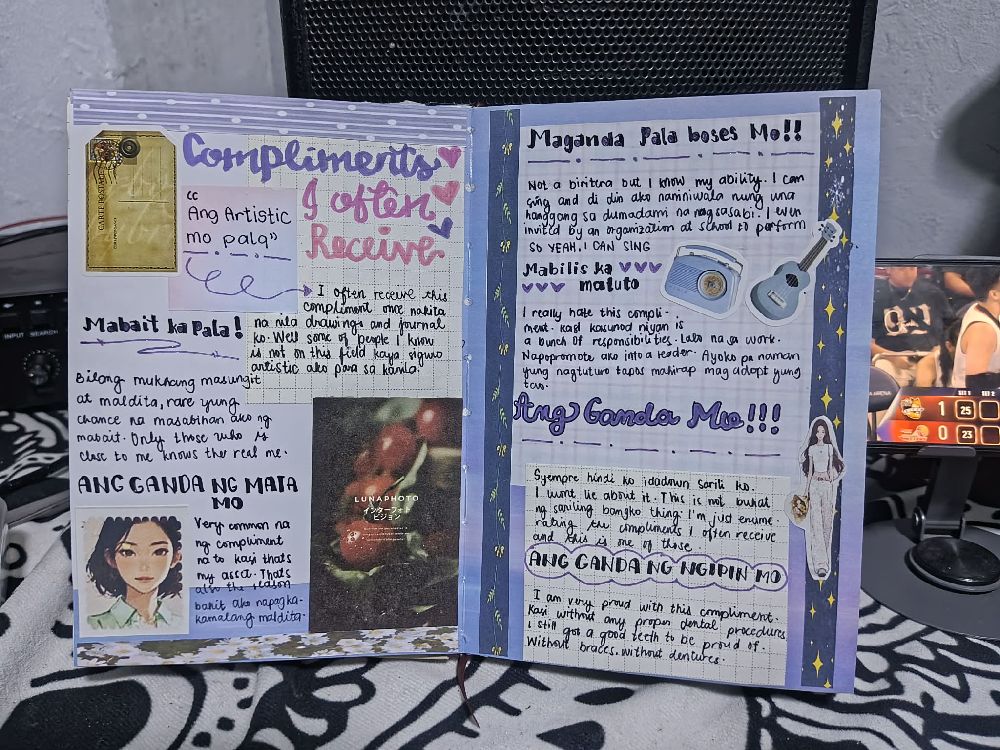 CARTE POSTALE
Compliments
I often
Receive
"Ang Artistic
mo pala"
I often receive this
compliment once nakita
na nila drawings and journal
ko. Well some of people I know
is not on this field kaya siguro
artistic ako para sa kanila.
Mabait ka Pala!
Bilang mukhang masungit
at maldita, rare yung
chance na masabihan ako ng
mabait. Only those who is
close to me knows the real me.
ANG GANDA NG MATA
MO
Very common na
ng compliment
na to kasi thats
my asset. Thats
also the reason
bakit ako napagka-
kamalang maldita.
LUNAPHOTO
インターフォト
ビジョン
Maganda Pala boses Mo!!
Not a biritera but I know my ability. I can
sing and di din ako naniniwala nung una
hanggang sa dumadami na nagsasabi. I even
invited by an organization at school to perform
SO YEAH. I CAN SING
Mabilis ka
matuto
I really hate this compli-
ment. kasi kasunod niyan is
a bunch of responsibilities. Lalo na sa work.
Napopromote ako into a leader. Ayoko pa naman
yung nagtuturo tapos mahirap mag adopt yung
tao.
Ang Ganda Mo!!!
Syempre hindi ko idadown sarili ko.
I wont lie about it. This is not buhat
ng sariling bangko thing. I'm just enume-
rating the compliments I often receive
and this is one of those
ANG GANDA NG NGIPIN MO
I am very proud with this compliment.
Kasi without any proper dental procedures,
i still got a good teeth to be proud of.
Without braces. without dentures.
INPUT SEARCH
SET 1 SET 2
1 25
0 23